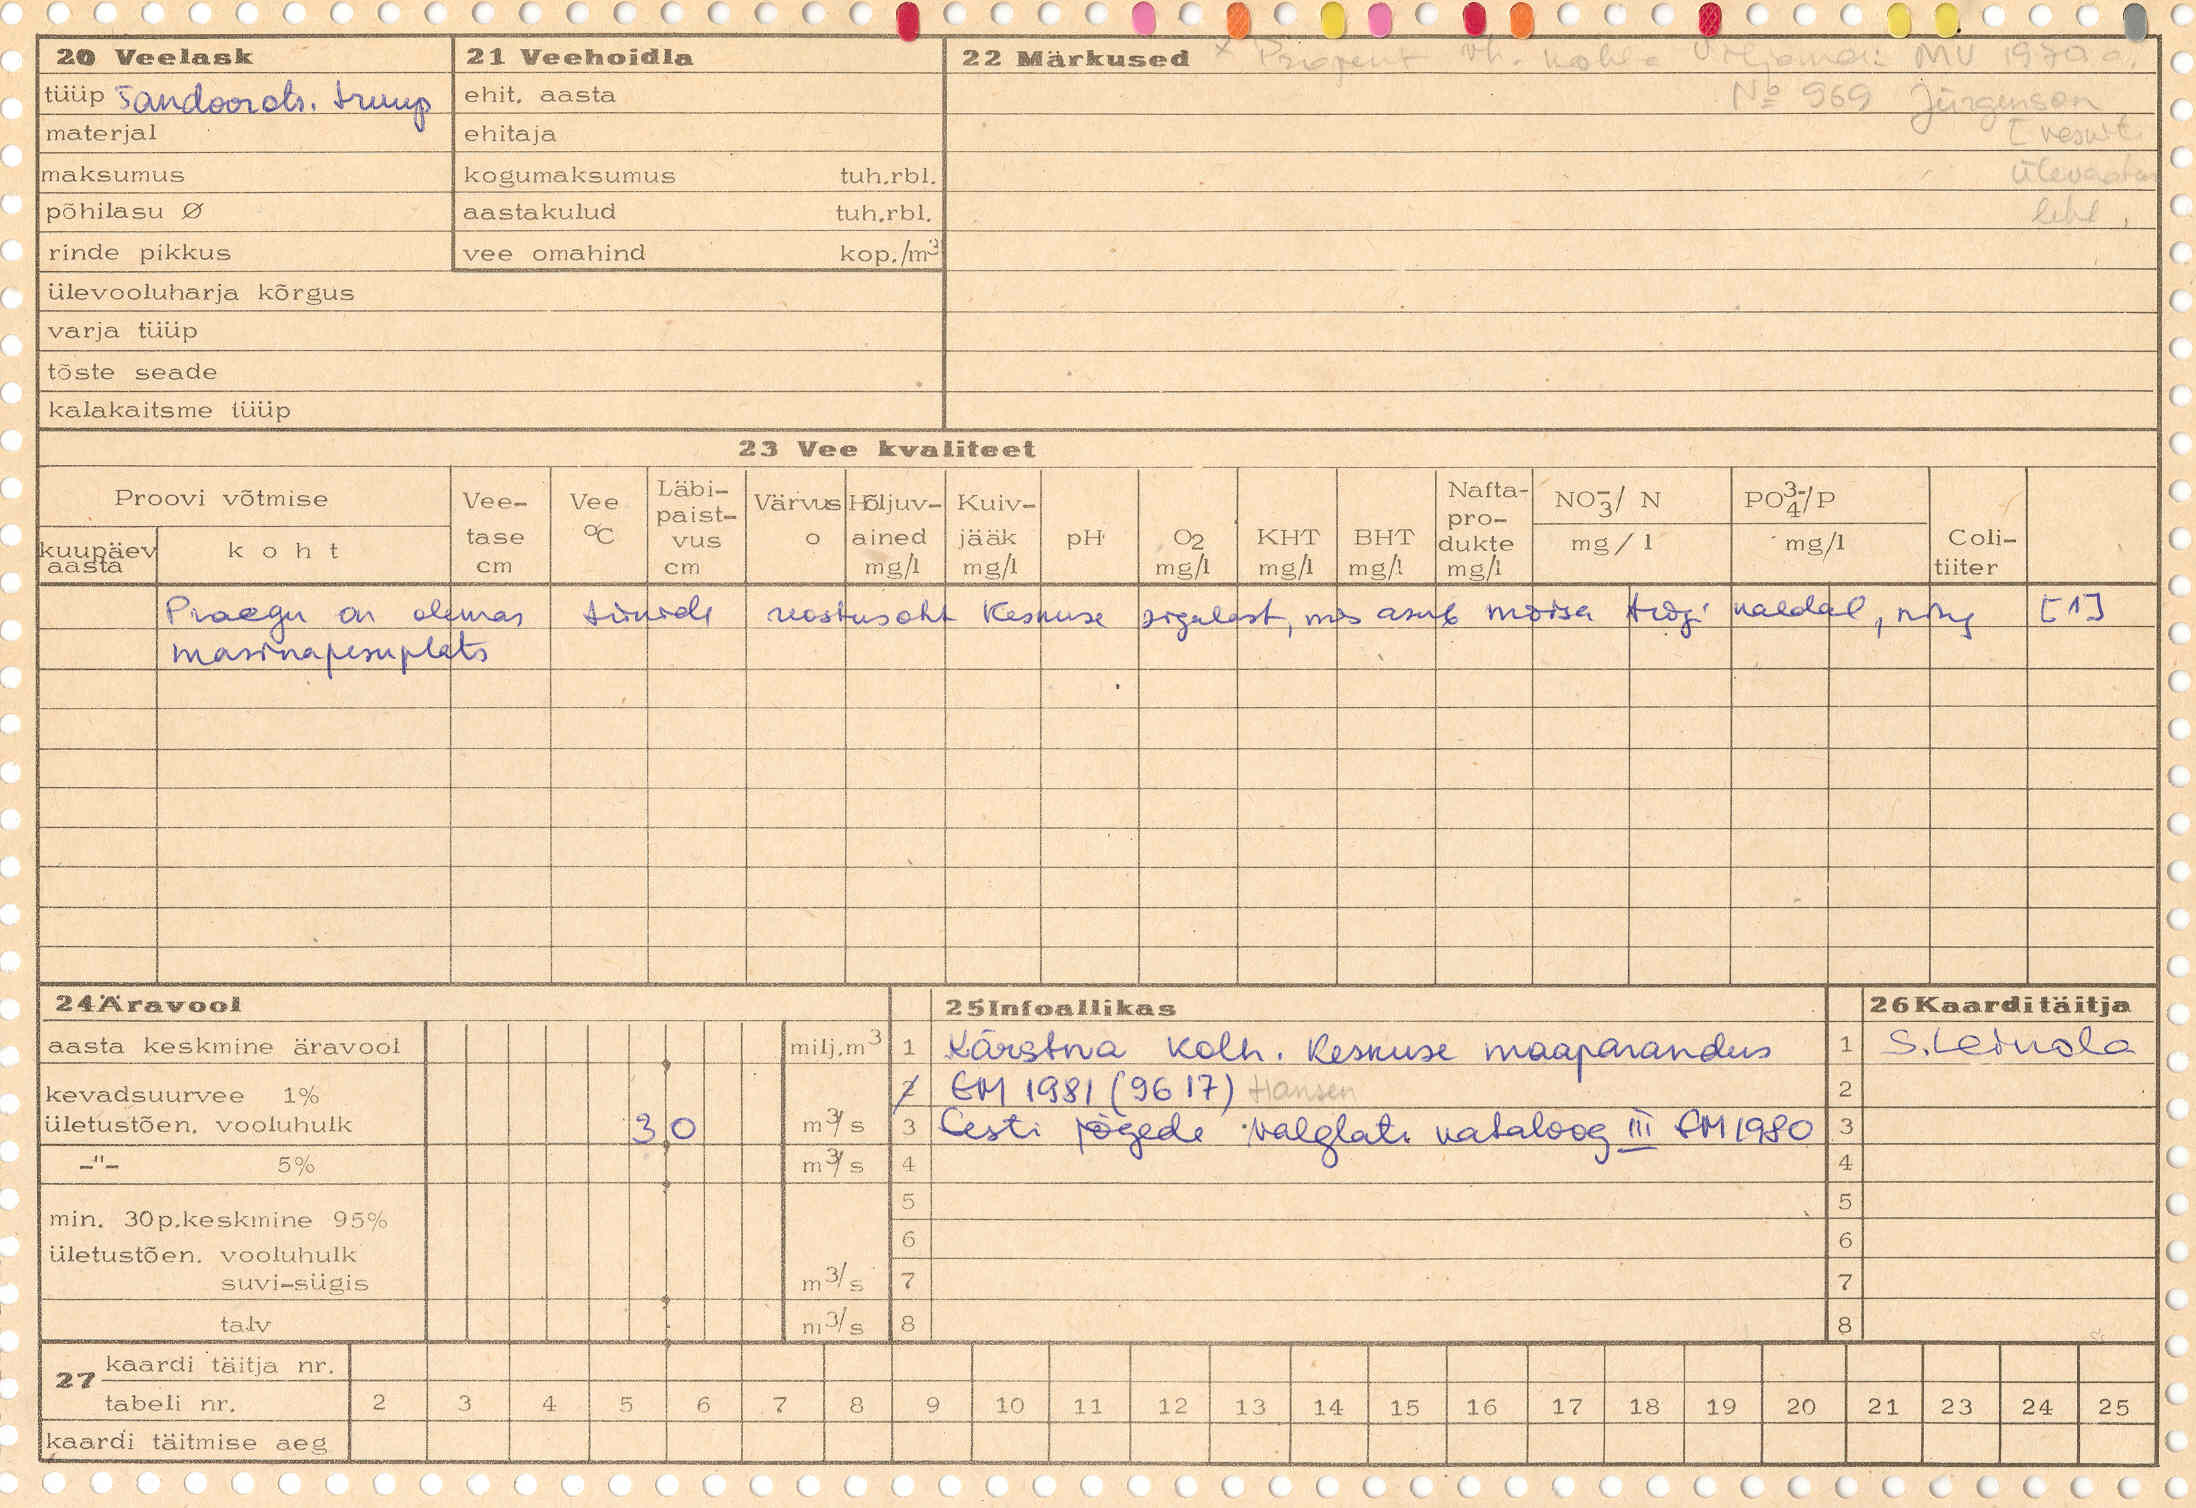 20 Veelask
tüüp šandoorats. truup
materjal
maksumus
põhilasu Ø
rinde pikkus
ülevooluharja kõrgus
varja tüüp
tõste seade
kalakaitsme tüüp
21 Veehoidla
ehit. aasta
ehitaja
kogumaksumus tuh.rbl.
aastakulud tuh.rbl.
vee omahind kop./m3
22 Märkused x Projekt vh. kohta Viljandi MV 1970 a.
No 969 Jürgenson
ülevaatus
lehel
23 Vee kvaliteet
Proovi võtmise
kuupäev aasta
koht
Vee-
tase
cm
Vee
°C
Läbi-
paist-
vus
cm
Värvus
o
Hõljuv-
ained
mg/l
Kuiv-
jääk
mg/l
pH
O2
mg/l
KHT
mg/l
BHT
mg/l
Nafta-
pro-
dukte
mg/l
NO3-/ N
mg/l
PO43-/P
mg/l
Coli-
tiiter
Praegu on olemas tiikide reostusoht Keskuse sigalast, mis asub mõisa tiigi kaldal, ning [1]
masinapesuplats
24 Äravool
aasta keskmine äravool milj.m3
kevadsuurvee 1%
ületustõen. vooluhulk 30 m3/s
-"- 5% m3/s
min. 30p.keskmine 95%
ületustõen. vooluhulk
suvi-sügis m3/s
talv m3/s
25 Infoallikas
1 Kärstna kolh. Keskuse maaparandus
2 EM 1981 (9617) Hansen
3 Eesti jõgede valglate kataloog III EM 1980
4
5
6
7
8
26 Kaarditäitja
1 S. Leinola
2
3
4
5
6
7
8
27 kaardi täitja nr.
tabeli nr. 2 3 4 5 6 7 8 9 10 11 12 13 14 15 16 17 18 19 20 21 23 24 25
kaardi täitmise aeg